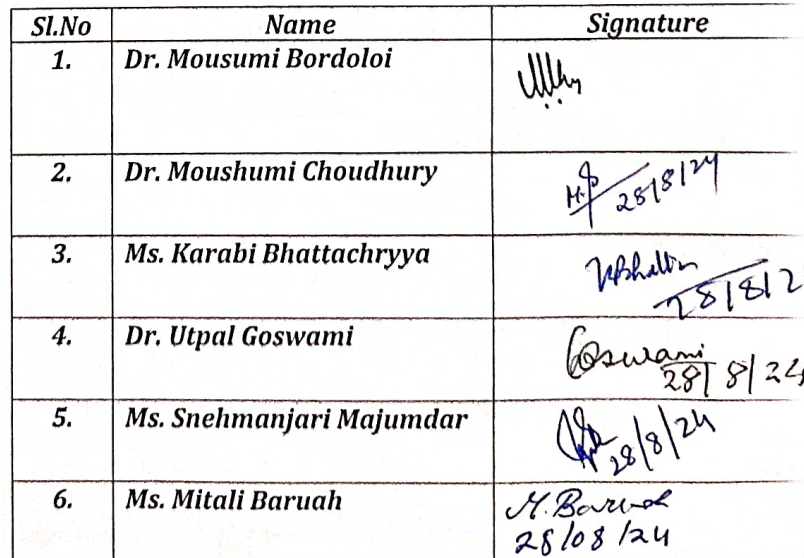 Sl.No Name Signature
1. Dr. Mousumi Bordoloi
2. Dr. Moushumi Choudhury 28/8/24
3. Ms. Karabi Bhattachryya
28/8/2
4. Dr. Utpal Goswami Goswami
28/8/24
5. Ms. Snehmanjari Majumdar 28/8/24
6. Ms. Mitali Baruah M. Baruah
28/08/24